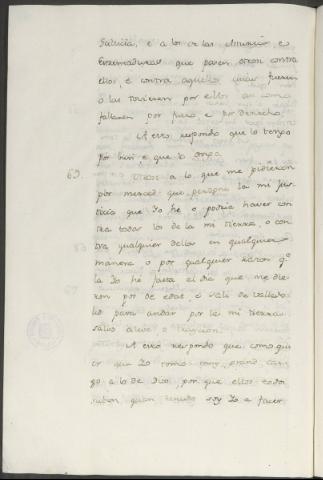 Galicia, e a los de las
Extremaduras que pasen otros contra
ellos, e contra aquellos
o las tovieren por ellos
fallaren por fuero e por derecho.
A esto respondo que lo tengo
por bien e que lo otorgo.
69. Otrosi a lo que me pidieron
por merced que perdone la mi jus-
ticia que Yo he o podria haver con
tra todos los de la mi tierra, o con
tra qualquier dellos en qualquier
manera o por qualquier razon qe
la Yo he fasta el dia que me die
ron por de edat, e sali de Vallado
lid para andar por la mi tierra
salvo aleve o traycion.
A esto respondo que como qui
er que Yo tomo muy grand car
go a lo de Dios, porque ellos todos
saben quan tenudo soy Yo a facer